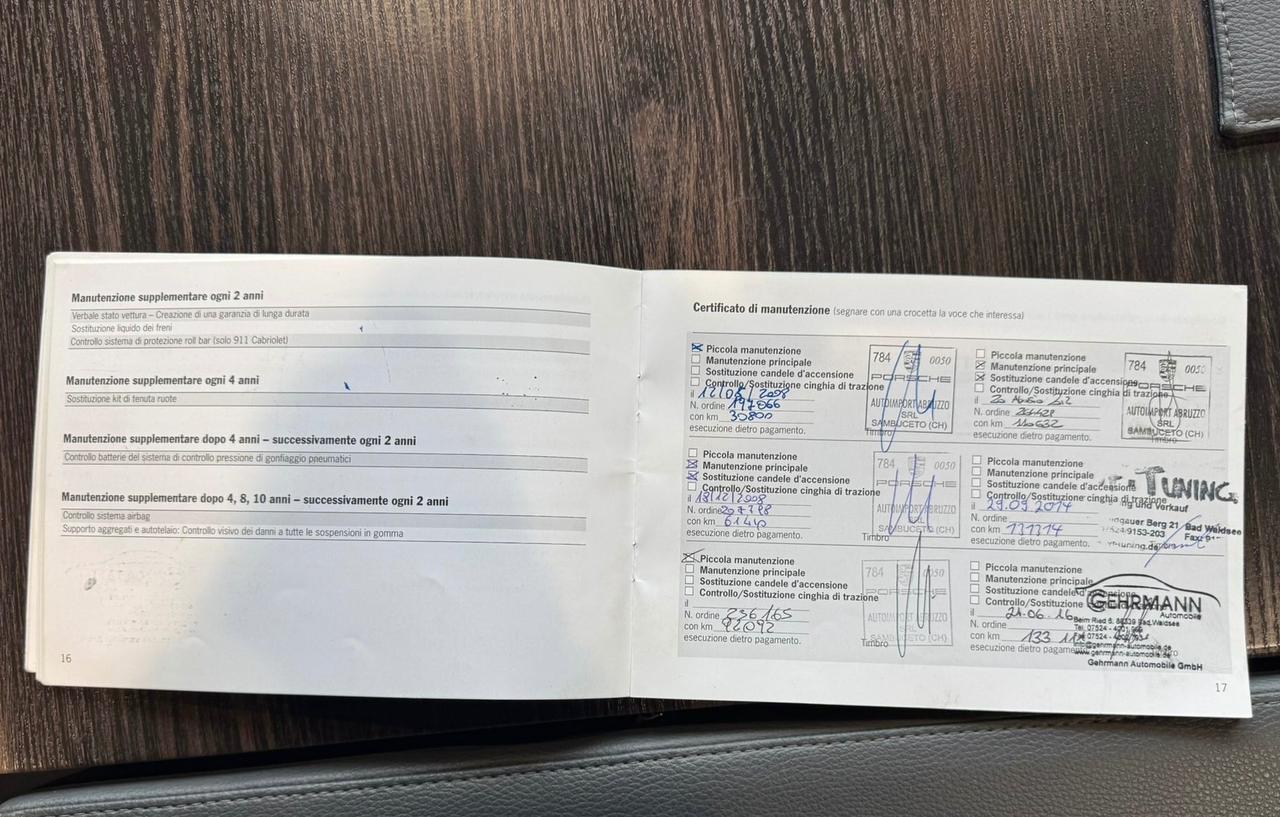 Manutenzione supplementare ogni 2 anni
Verbale stato vettura – Creazione di una garanzia di lunga durata
Sostituzione liquido dei freni
Controllo sistema di protezione roll bar (solo 911 Cabriolet)
Manutenzione supplementare ogni 4 anni
Sostituzione kit di tenuta ruote
Manutenzione supplementare dopo 4 anni – successivamente ogni 2 anni
Controllo batterie del sistema di controllo pressione di gonfiaggio pneumatici
Manutenzione supplementare dopo 4, 8, 10 anni – successivamente ogni 2 anni
Controllo sistema airbag
Supporto aggregati e autotelaio: Controllo visivo dei danni a tutte le sospensioni in gomma
16
Certificato di manutenzione (segnare con una crocetta la voce che interessa)
Piccola manutenzione
Manutenzione principale
Sostituzione candele d'accensione
Controllo/Sostituzione cinghia di trazione
il
N. ordine 197066
con km 30800
esecuzione dietro pagamento.
784 0050
PORSCHE
AUTOIMPORT ABRUZZO
SRL
SAMBUCETO (CH)
Timbro
Piccola manutenzione
Manutenzione principale
Sostituzione candele d'accensione
Controllo/Sostituzione cinghia di trazione
il 18/12/2008
N. ordine 207798
con km
esecuzione dietro pagamento.
784 0050
PORSCHE
AUTOIMPORT ABRUZZO
SRL
SAMBUCETO (CH)
Timbro
Piccola manutenzione
Manutenzione principale
Sostituzione candele d'accensione
Controllo/Sostituzione cinghia di trazione
il
N. ordine 236165
con km 92092
esecuzione dietro pagamento.
784 0050
PORSCHE
AUTOIMPORT ABRUZZO
SRL
SAMBUCETO (CH)
Timbro
Piccola manutenzione
Manutenzione principale
Sostituzione candele d'accensione
Controllo/Sostituzione cinghia di trazione
il
N. ordine
con km 110632
esecuzione dietro pagamento.
784 0050
PORSCHE
AUTOIMPORT ABRUZZO
SRL
SAMBUCETO (CH)
Timbro
Piccola manutenzione
Manutenzione principale
Sostituzione candele d'accensione
Controllo/Sostituzione cinghia di trazione
il 29.09.2014
N. ordine
con km 131314
esecuzione dietro pagamento.
TUNING
und Verkauf
Berg 21 Bad Waldsee
9153-203 Fax:
tuning.de
Piccola manutenzione
Manutenzione principale
Sostituzione
Controllo/Sostituzione
il 21.06.16
N. ordine
con km 133
esecuzione dietro
GEHRMANN
Automobile
Beim Ried 5, 88339 Bad Waldsee
www.gehrmann-automobile.de
Gehrmann Automobile GmbH
17